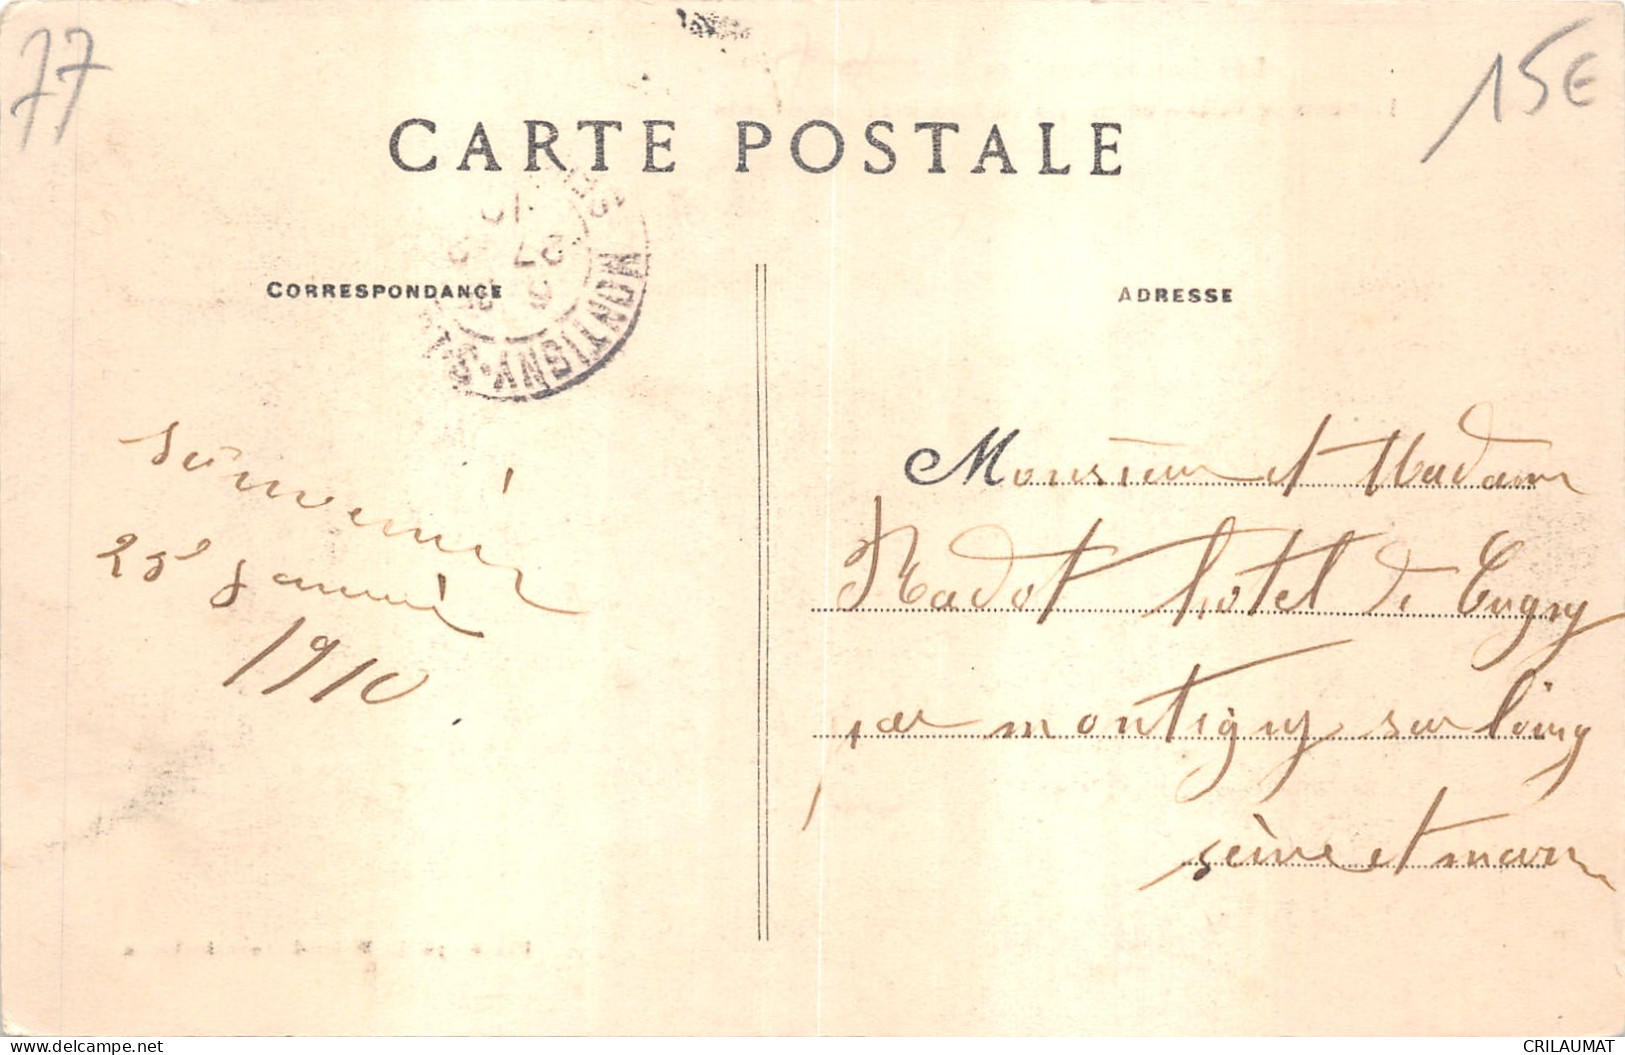 77
15E
CARTE POSTALE
CORRESPONDANCE
ADRESSE
27
10
MONTIGNY-S
souvenir
25 Janvié
1910
Monsieur et Madam
Nadot hotel de Cugny
par montigny sur loing
seine et marn
CRILAUMAT